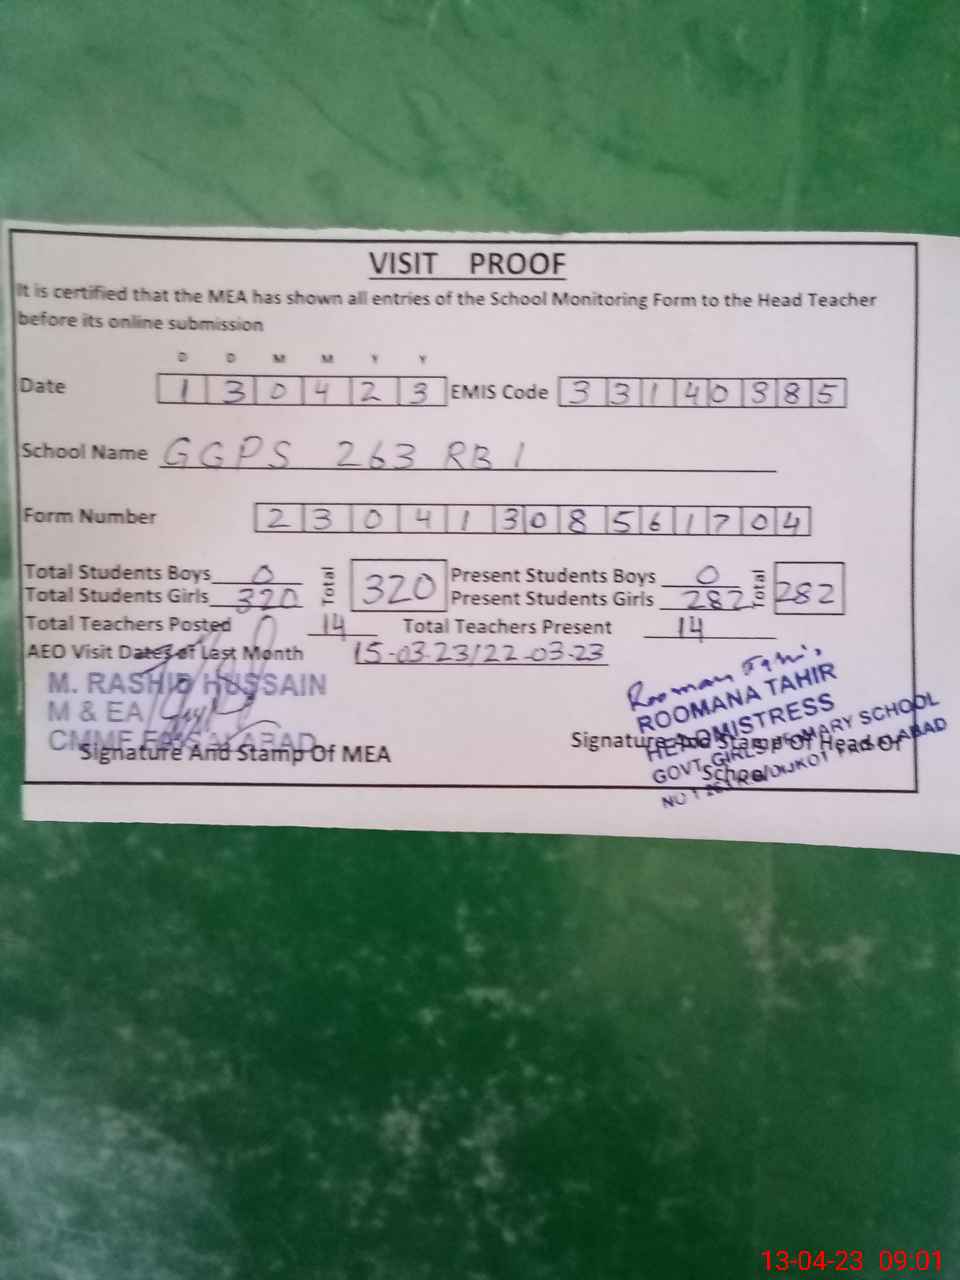 VISIT PROOF
It is certified that the MEA has shown all entries of the School Monitoring Form to the Head Teacher
before its online submission
D D M M Y Y
Date 1 3 0 4 2 3 EMIS Code 3 3 1 4 0 3 8 5
School Name GGPS 263 RB 1
Form Number 2 3 0 4 1 3 0 8 5 6 1 7 0 4
Total Students Boys 0 Total 320 Present Students Boys 0 Total 282
Total Students Girls 320 Present Students Girls 282
Total Teachers Posted 14 Total Teachers Present 14
AEO Visit Dates of Last Month 15-03-23/22-03-23
M. RASHID HUSSAIN
M & EA
CMMF FAISALABAD
Signature And Stamp Of MEA
Rooman Tahir
ROOMANA TAHIR
HEADMISTRESS
GOVT. GIRLS PRIMARY SCHOOL
NO 1 263 R.B/DIJKOT FAISALABAD
Signature And Stamp Of Head Of
School
13-04-23 09:01